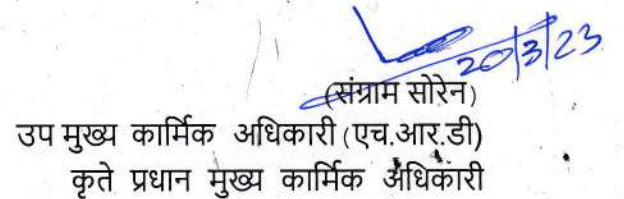 20/3/23
(संग्राम सोरेन)
उप मुख्य कार्मिक अधिकारी (एच.आर.डी)
कृते प्रधान मुख्य कार्मिक अधिकारी